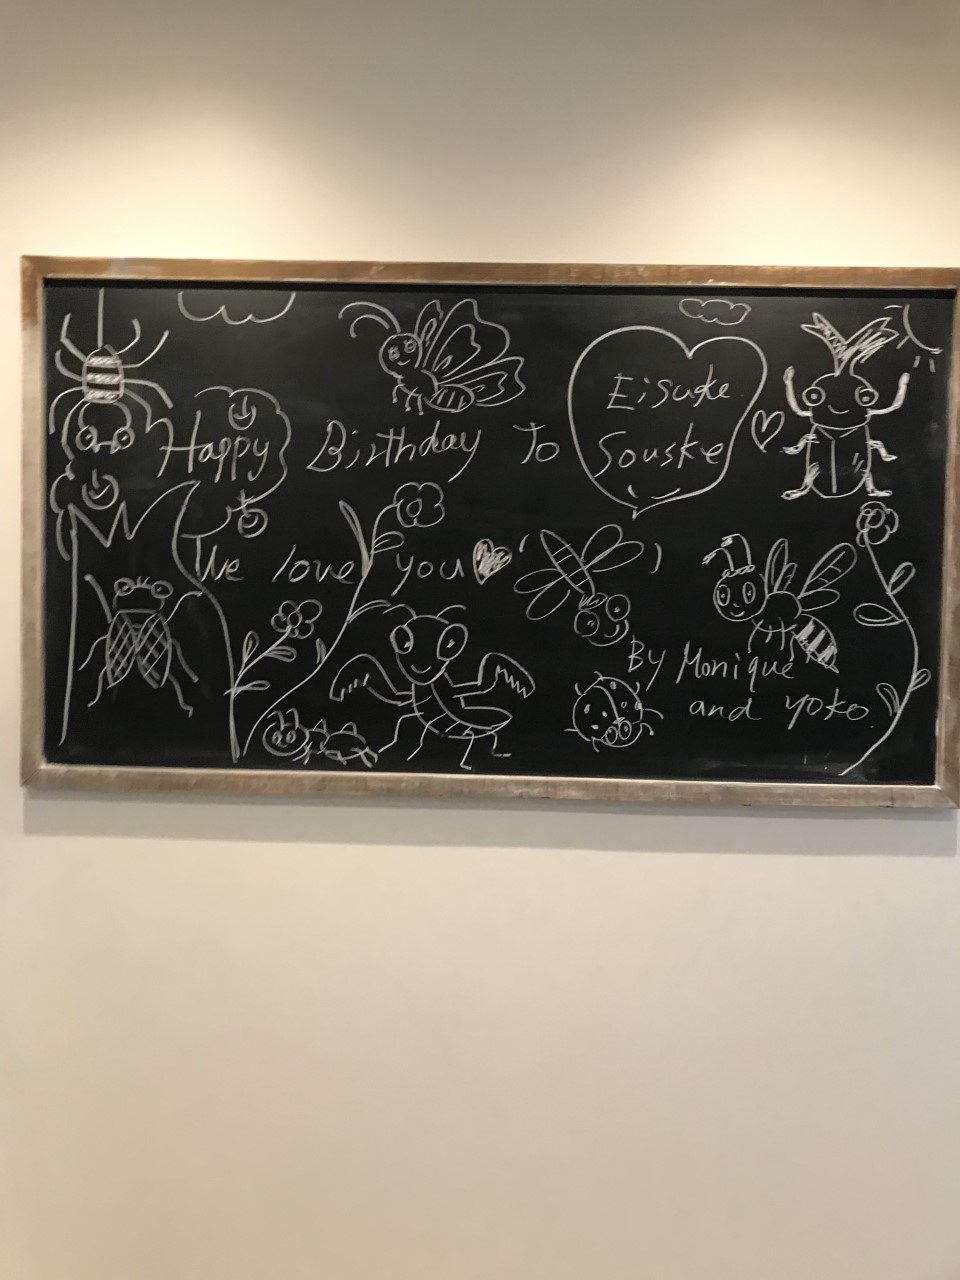 Happy Birthday To Eisuke Souske
We love you
By Monique
and yoko.